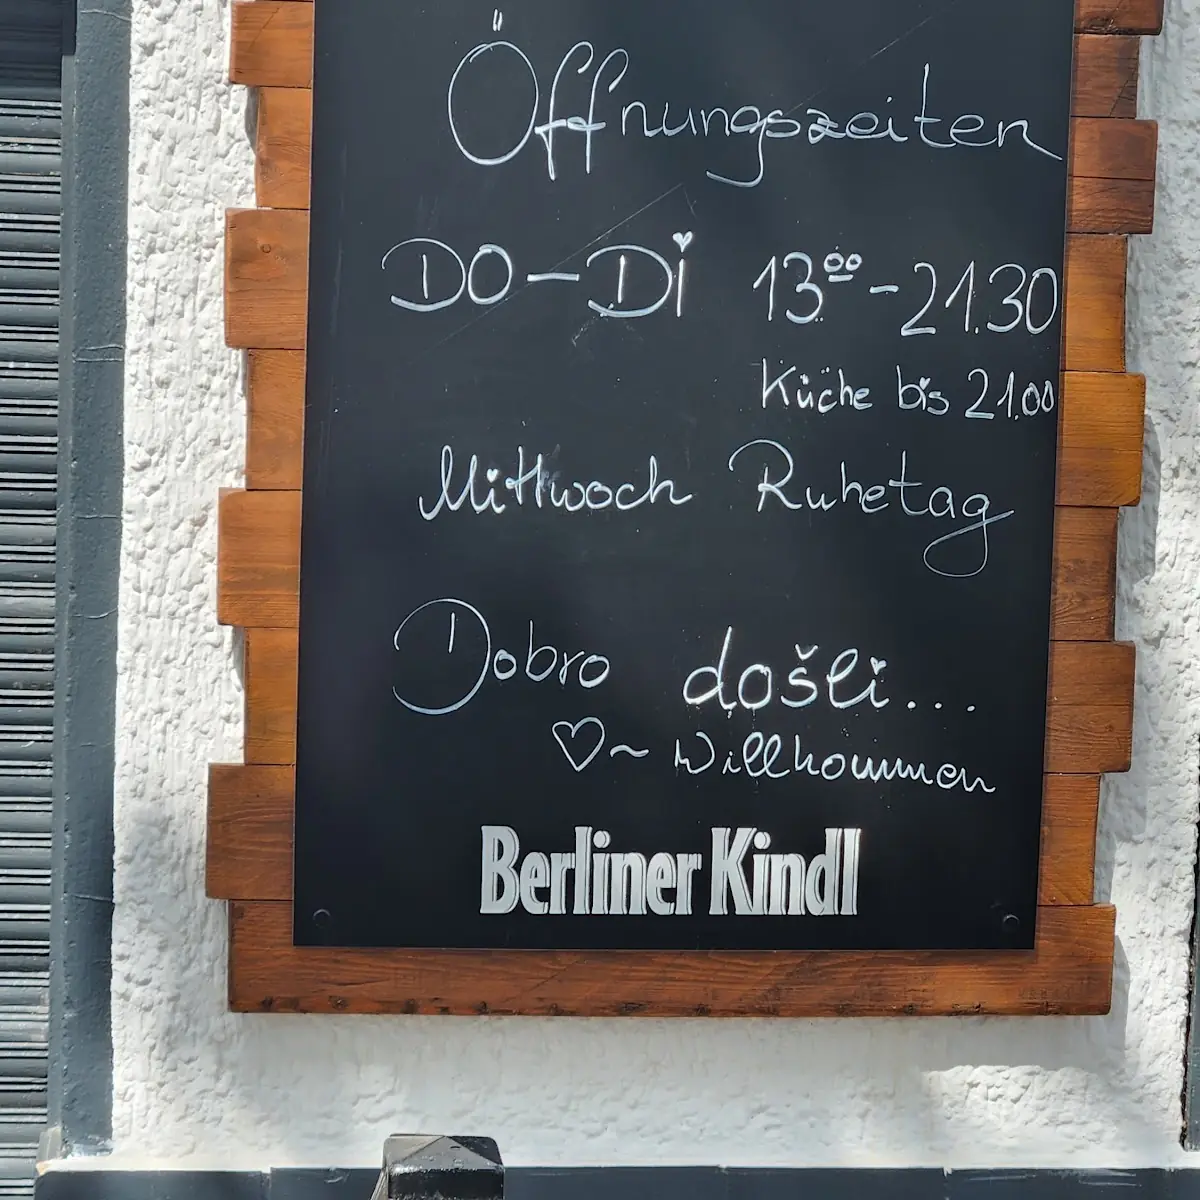 Öffnungszeiten
DO-Di 13⁰⁰-21.30
Küche bis 21.00
Mittwoch Ruhetag
Dobro došli...
♡~ Willkommen
Berliner Kindl